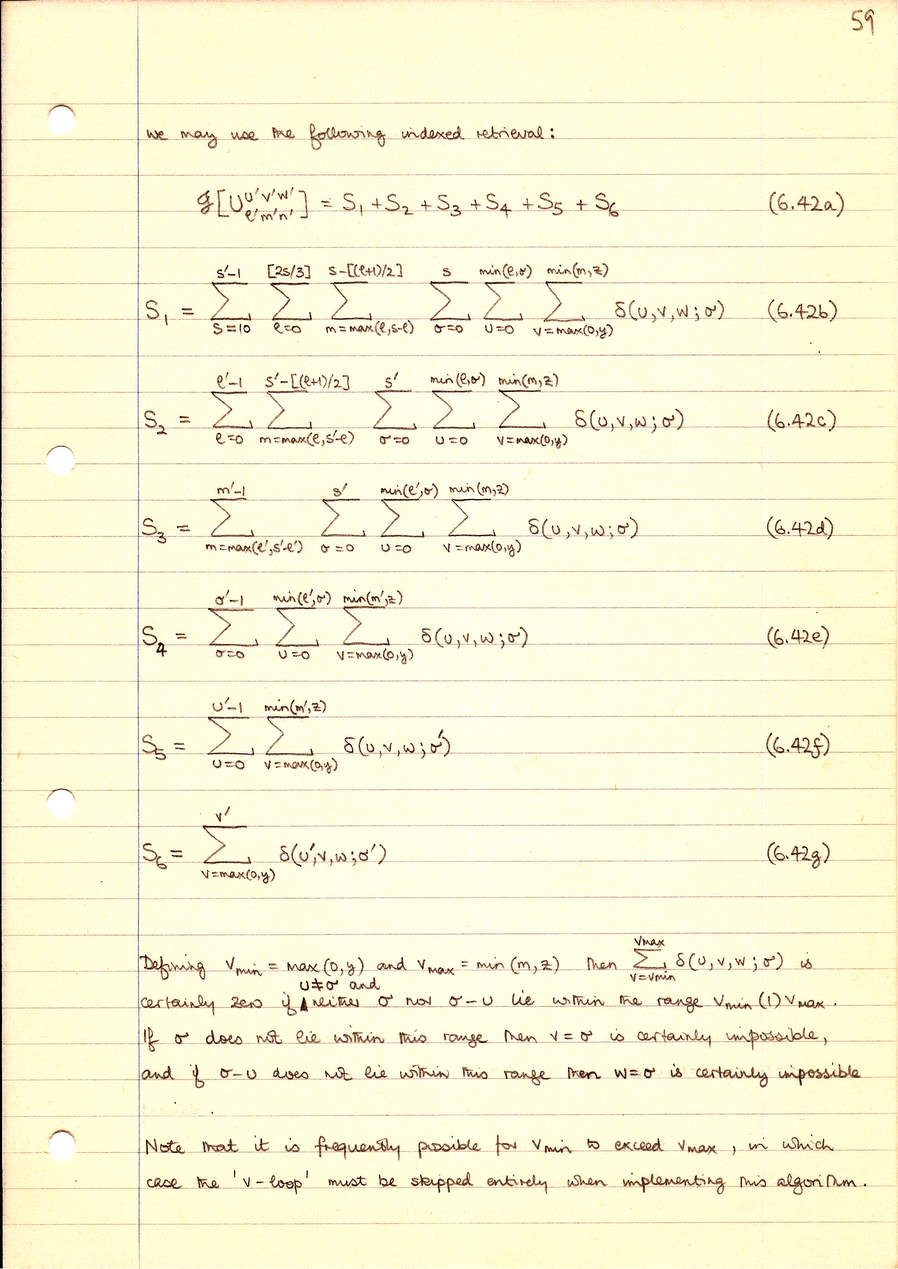 59
we may use the following indexed retrieval:
g[U^{u'v'w'}_{l'm'n'}] = S₁ + S₂ + S₃ + S₄ + S₅ + S₆ (6.42a)
S₁ = \sum_{s=10}^{s'-1} \sum_{l=0}^{[2s/3]} \sum_{m=max(l,s-l)}^{s-[(l+1)/2]} \sum_{σ=0}^{s} \sum_{u=0}^{min(l,σ)} \sum_{v=max(0,y)}^{min(m,z)} δ(u,v,w;σ) (6.42b)
S₂ = \sum_{l=0}^{l'-1} \sum_{m=max(l,s'-l)}^{s'-[(l+1)/2]} \sum_{σ=0}^{s'} \sum_{u=0}^{min(l,σ)} \sum_{v=max(0,y)}^{min(m,z)} δ(u,v,w;σ) (6.42c)
S₃ = \sum_{m=max(l',s'-l')}^{m'-1} \sum_{σ=0}^{s'} \sum_{u=0}^{min(l',σ)} \sum_{v=max(0,y)}^{min(m,z)} δ(u,v,w;σ) (6.42d)
S₄ = \sum_{σ=0}^{σ'-1} \sum_{u=0}^{min(l',σ)} \sum_{v=max(0,y)}^{min(m',z)} δ(u,v,w;σ) (6.42e)
S₅ = \sum_{u=0}^{u'-1} \sum_{v=max(0,y)}^{min(m',z)} δ(u,v,w;σ') (6.42f)
S₆ = \sum_{v=max(0,y)}^{v'} δ(u',v,w;σ') (6.42g)
Defining v_{min} = max(0,y) and v_{max} = min(m,z) then \sum_{v=v_{min}}^{v_{max}} δ(u,v,w;σ) is
certainly zero if u≠σ and neither σ nor σ-u lie within the range v_{min}(1)v_{max}.
If σ does not lie within this range then v=σ is certainly impossible,
and if σ-u does not lie within this range then w=σ is certainly impossible
Note that it is frequently possible for v_{min} to exceed v_{max}, in which
case the 'v-loop' must be skipped entirely when implementing this algorithm.